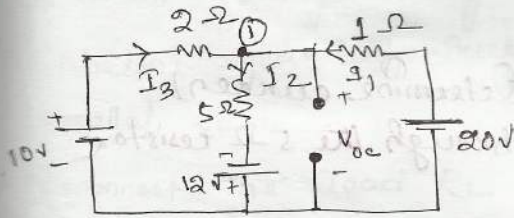 2 Ω ① 1 Ω
I3 I2 I1
5Ω +
+ 10V - - 12V + Voc - 20V